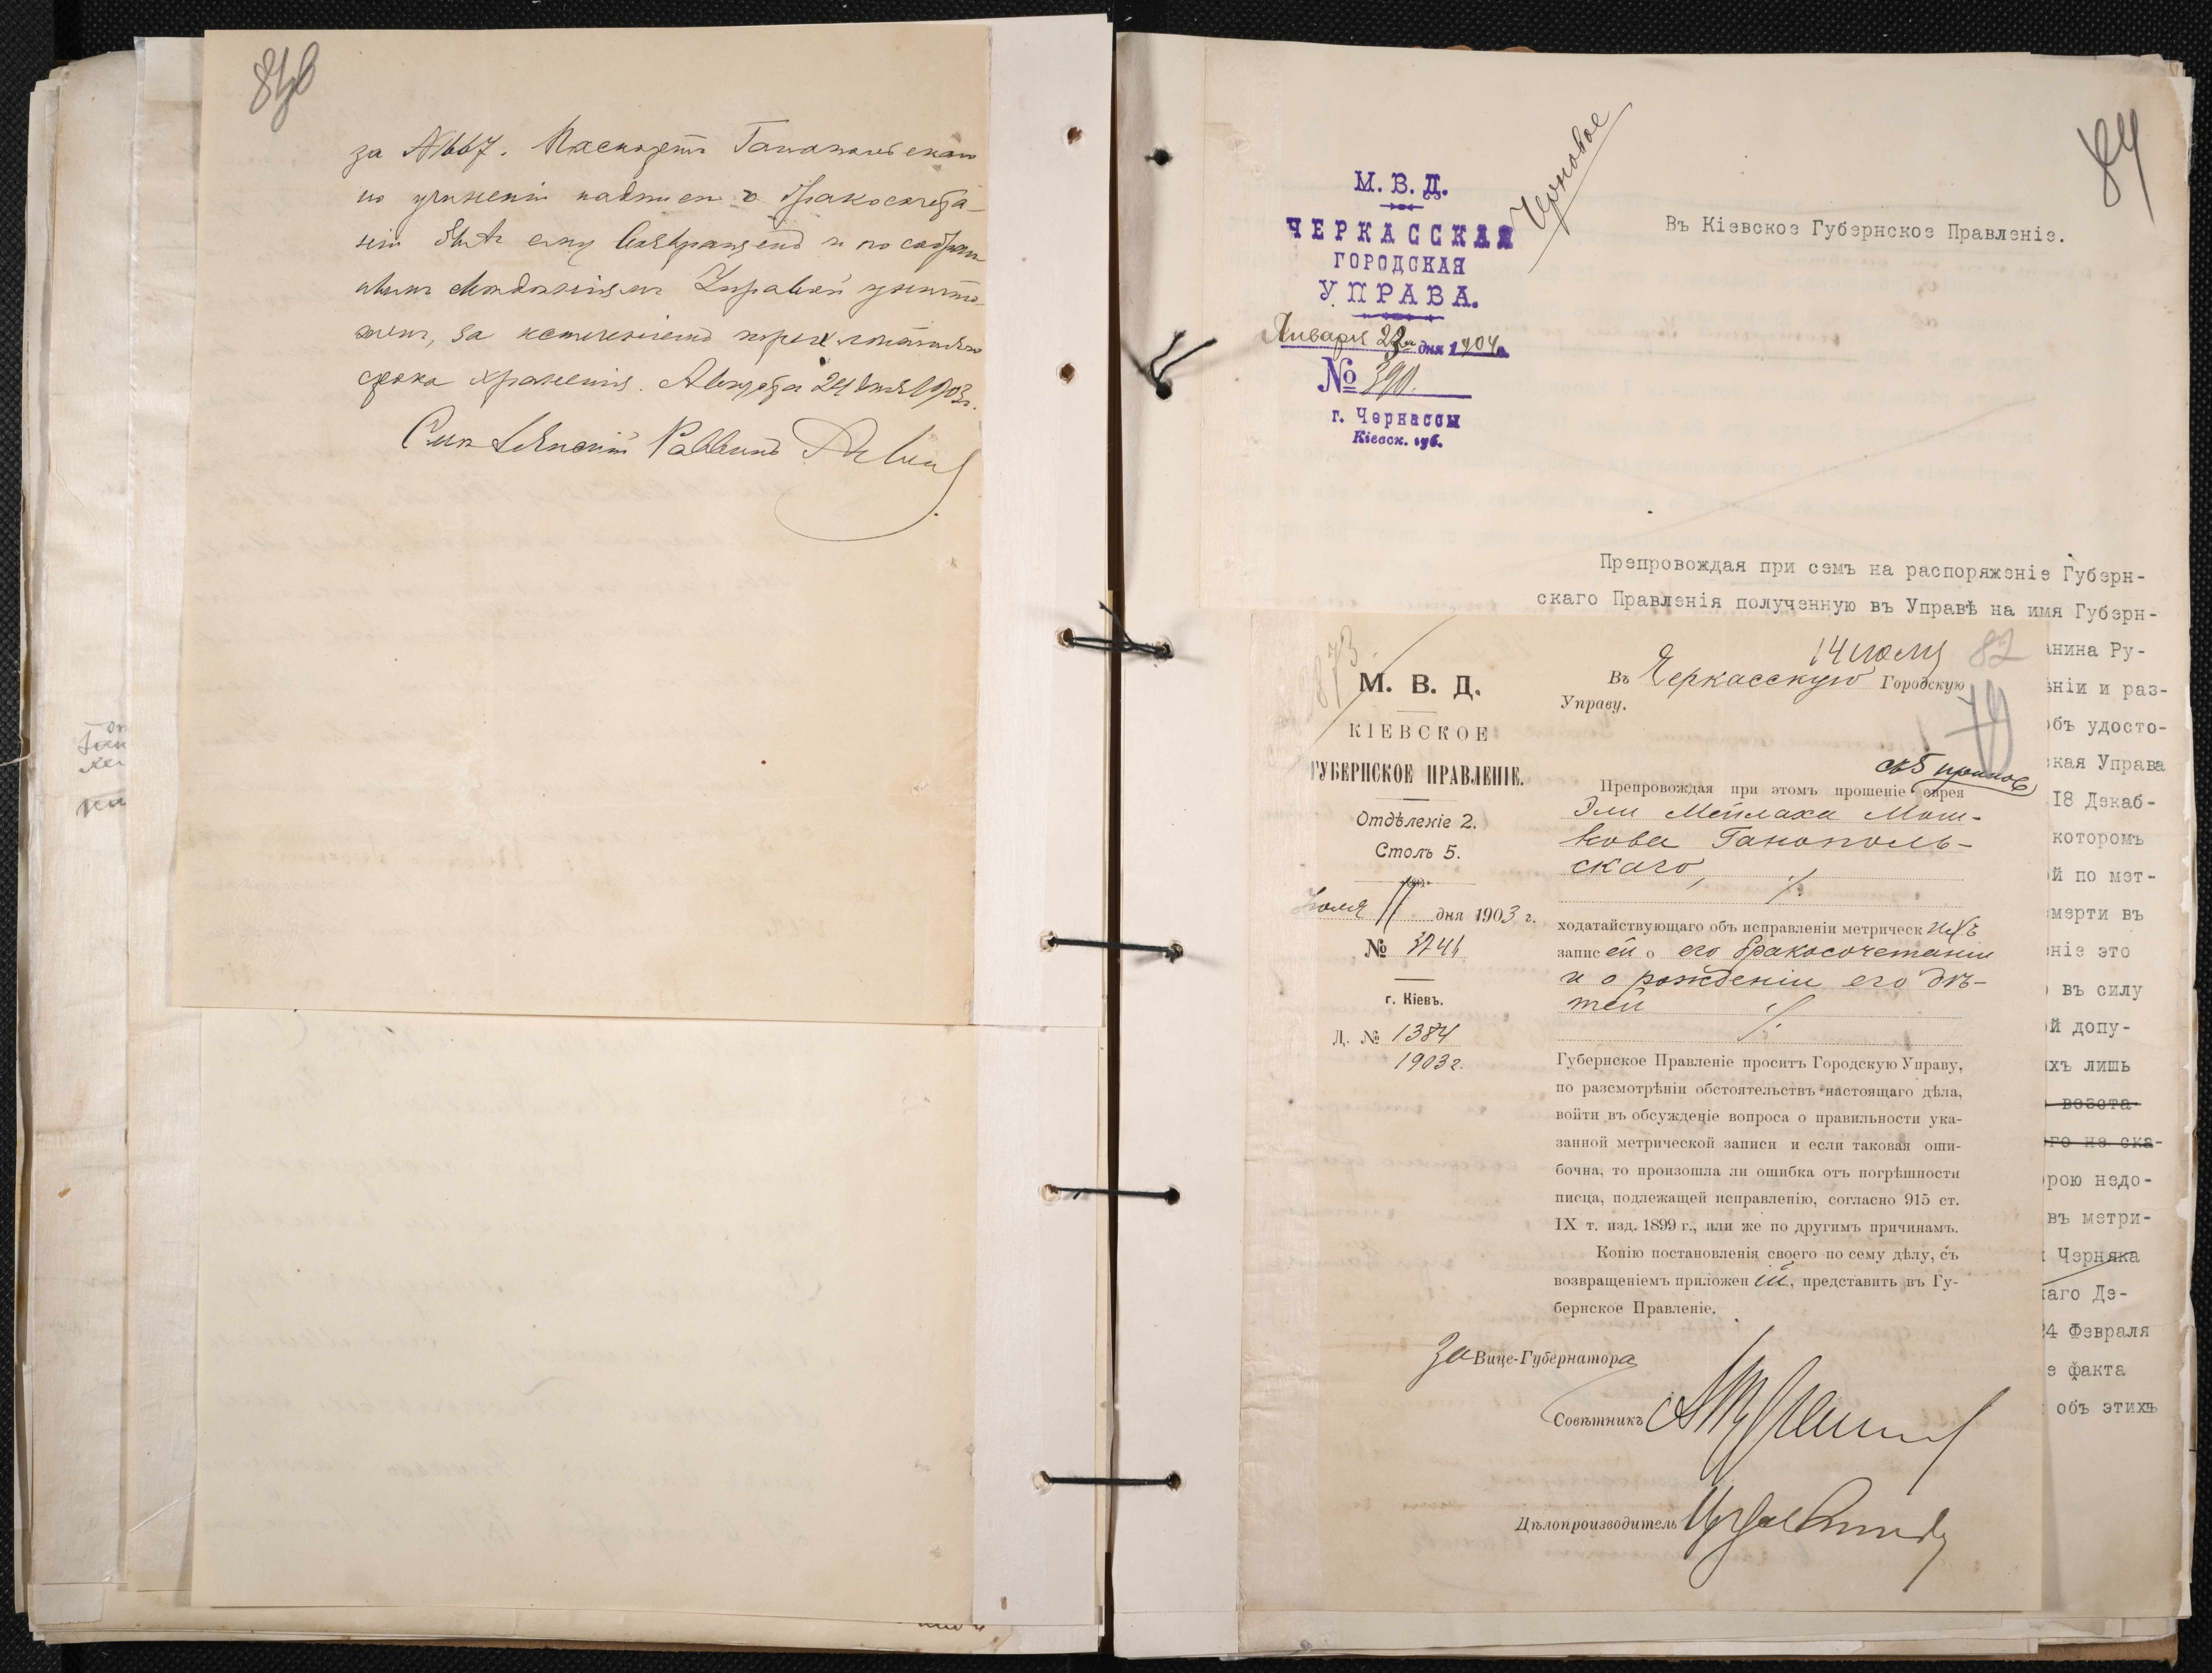 за №667. Паспортъ Ганопольскаго
по учиненіи надписи о бракосочета-
ніи былъ ему возвращенъ и по собран-
нымъ свѣдѣніямъ Управой уничто-
женъ, за истеченіемъ
срока храненія. Августа 24 дня 1903 г.
Раввинъ
84
Черновое
М. В. Д.
ЧЕРКАССКАЯ
ГОРОДСКАЯ
УПРАВА.
Января дня 1904 г.
№ 390.
г. Черкассы
Кіевск. губ.
Въ Кіевское Губернское Правленіе.
Препровождая при семъ на распоряженіе Губерн-
скаго Правленія полученную въ Управѣ на имя Губерн-
анина Ру-
ніи и раз-
объ удосто-
кая Управа
18 Декаб-
которомъ
й по мэт-
мерти въ
ніе это
въ силу
й допу-
хъ лишь
возота-
го не ска-
рою недо-
въ мэтри-
Черняка
аго Де-
24 Февраля
е факта
объ этихъ
873.
М. В. Д.
КІЕВСКОЕ
ГУБЕРНСКОЕ ПРАВЛЕНІЕ.
Отдѣленіе 2.
Столъ 5.
Іюля 11 дня 1903 г.
№ 3741
г. Кіевъ.
Д. № 1384
1903 г.
14 июля
82
79
Въ Черкасскую Городскую
Управу.
съ 5 прилож
Препровождая при этомъ прошеніе еврея
Эли Мейлаха Мош-
кова Ганополь-
скаго,
ходатайствующаго объ исправленіи метрическихъ
записей о его бракосочетаніи
и о рожденіи его дѣ-
тей
Губернское Правленіе проситъ Городскую Управу,
по разсмотрѣніи обстоятельствъ настоящаго дѣла,
войти въ обсужденіе вопроса о правильности ука-
занной метрической записи и если таковая оши-
бочна, то произошла ли ошибка отъ погрѣшности
писца, подлежащей исправленію, согласно 915 ст.
IX т. изд. 1899 г., или же по другимъ причинамъ.
Копію постановленія своего по сему дѣлу, съ
возвращеніемъ приложеній, представить въ Гу-
бернское Правленіе.
За Вице-Губернатора
Совѣтникъ
Дѣлопроизводитель